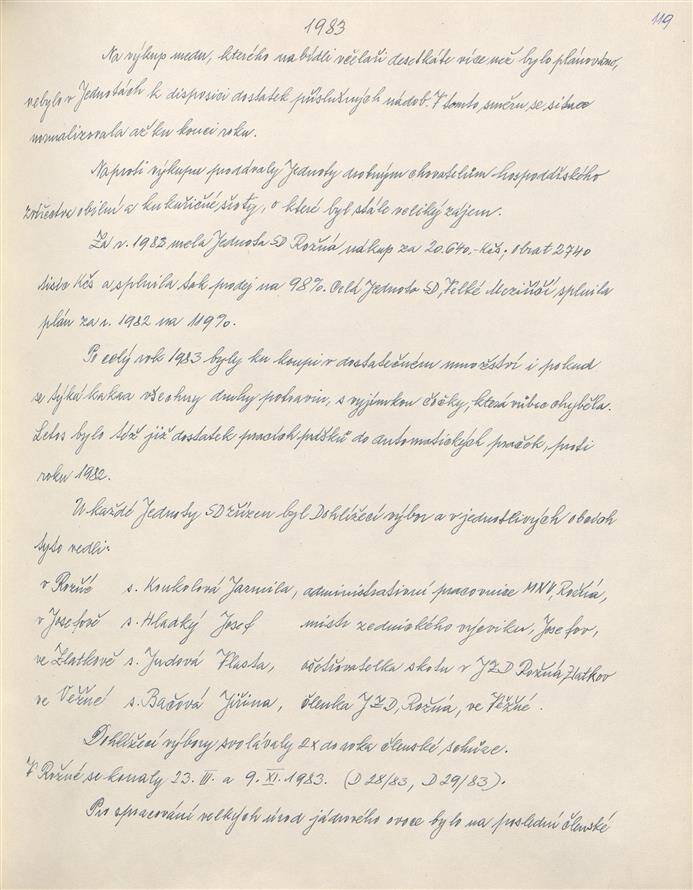 1983
119
Na výkup medu, kterého nabídli včelaři desetkráte více než bylo plánováno,
nebylo v Jednotách k disposici dostatek příslušných nádob. V tomto směru se situace
normalizovala až ku konci roku.
Naproti výkupu prodávaly Jednoty drobným chovatelům hospodářského
zvířectva obilní a kukuřičné šroty, o které byl stále veliký zájem.
Za r. 1983 měla Jednota SD Rožná nákup za 20.640.- Kčs; obrat 2740
tisíc Kčs a splnila tak prodej na 98%. Celá Jednota SD, Velké Meziříčí splnila
plán za r. 1982 na 119%.
Po celý rok 1983 byly ku koupi v dostatečném množství i pokud
se týká kakaa všechny druhy potravin, s vyjímkou čočky, která vůbec chyběla.
Letos bylo též již dostatek pracích prášků do automatických praček, proti
roku 1982.
U každé Jednoty SD zřízen byl Dohlížecí výbor a v jednotlivých obcích
tyto vedli:
v Rožné s. Konkolová Jarmila, administrativní pracovnice MNV, Rožná,
v Josefově s. Hladký Josef mistr zednického Josefov,
ve Zlatkově s. Judová Vlasta, ošetřovatelka skotu v JZD Rožná, Zlatkov
ve Věžné s. Bačová Jiřina, členka JZD, Rožná, ve Věžné.
Dohlížecí výbory svolávaly 2x do roka členské schůze.
V Rožné se konaly 23. III. a 9. XI. 1983. (D 28/83, D 29/83).
Pro spracování velkých úrod jádrového ovoce bylo na poslední členské